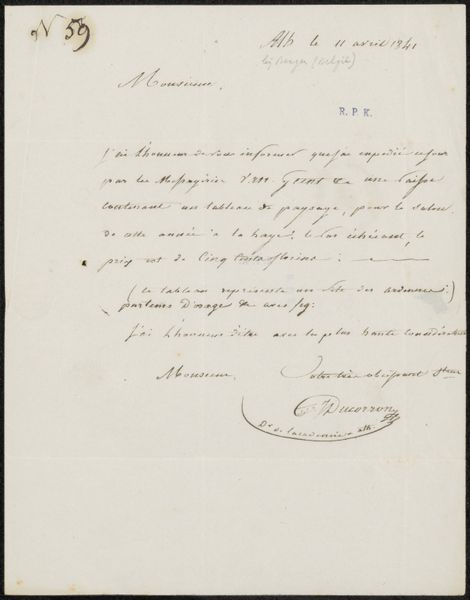 N 59
Ath le 11 avril 1841
bij Bergen (België)
Monsieur,
R. P. K.
J'ai l'honneur de vous informer que j'ai expedié ce jour
par les Messageries Van Gend &a une Caisse
contenant un tableau de paysage, pour le salon
de cette année à la haye; le cas échéant, le
prix est de Cinq Cents florins:
(le tableau représente un Site des ardennes:)
J'ai l'honneur d'être avec la plus haute Considération
Monsieur, Votre très obeissant Steur
Ducorron
Dr de l'academie a Ath.